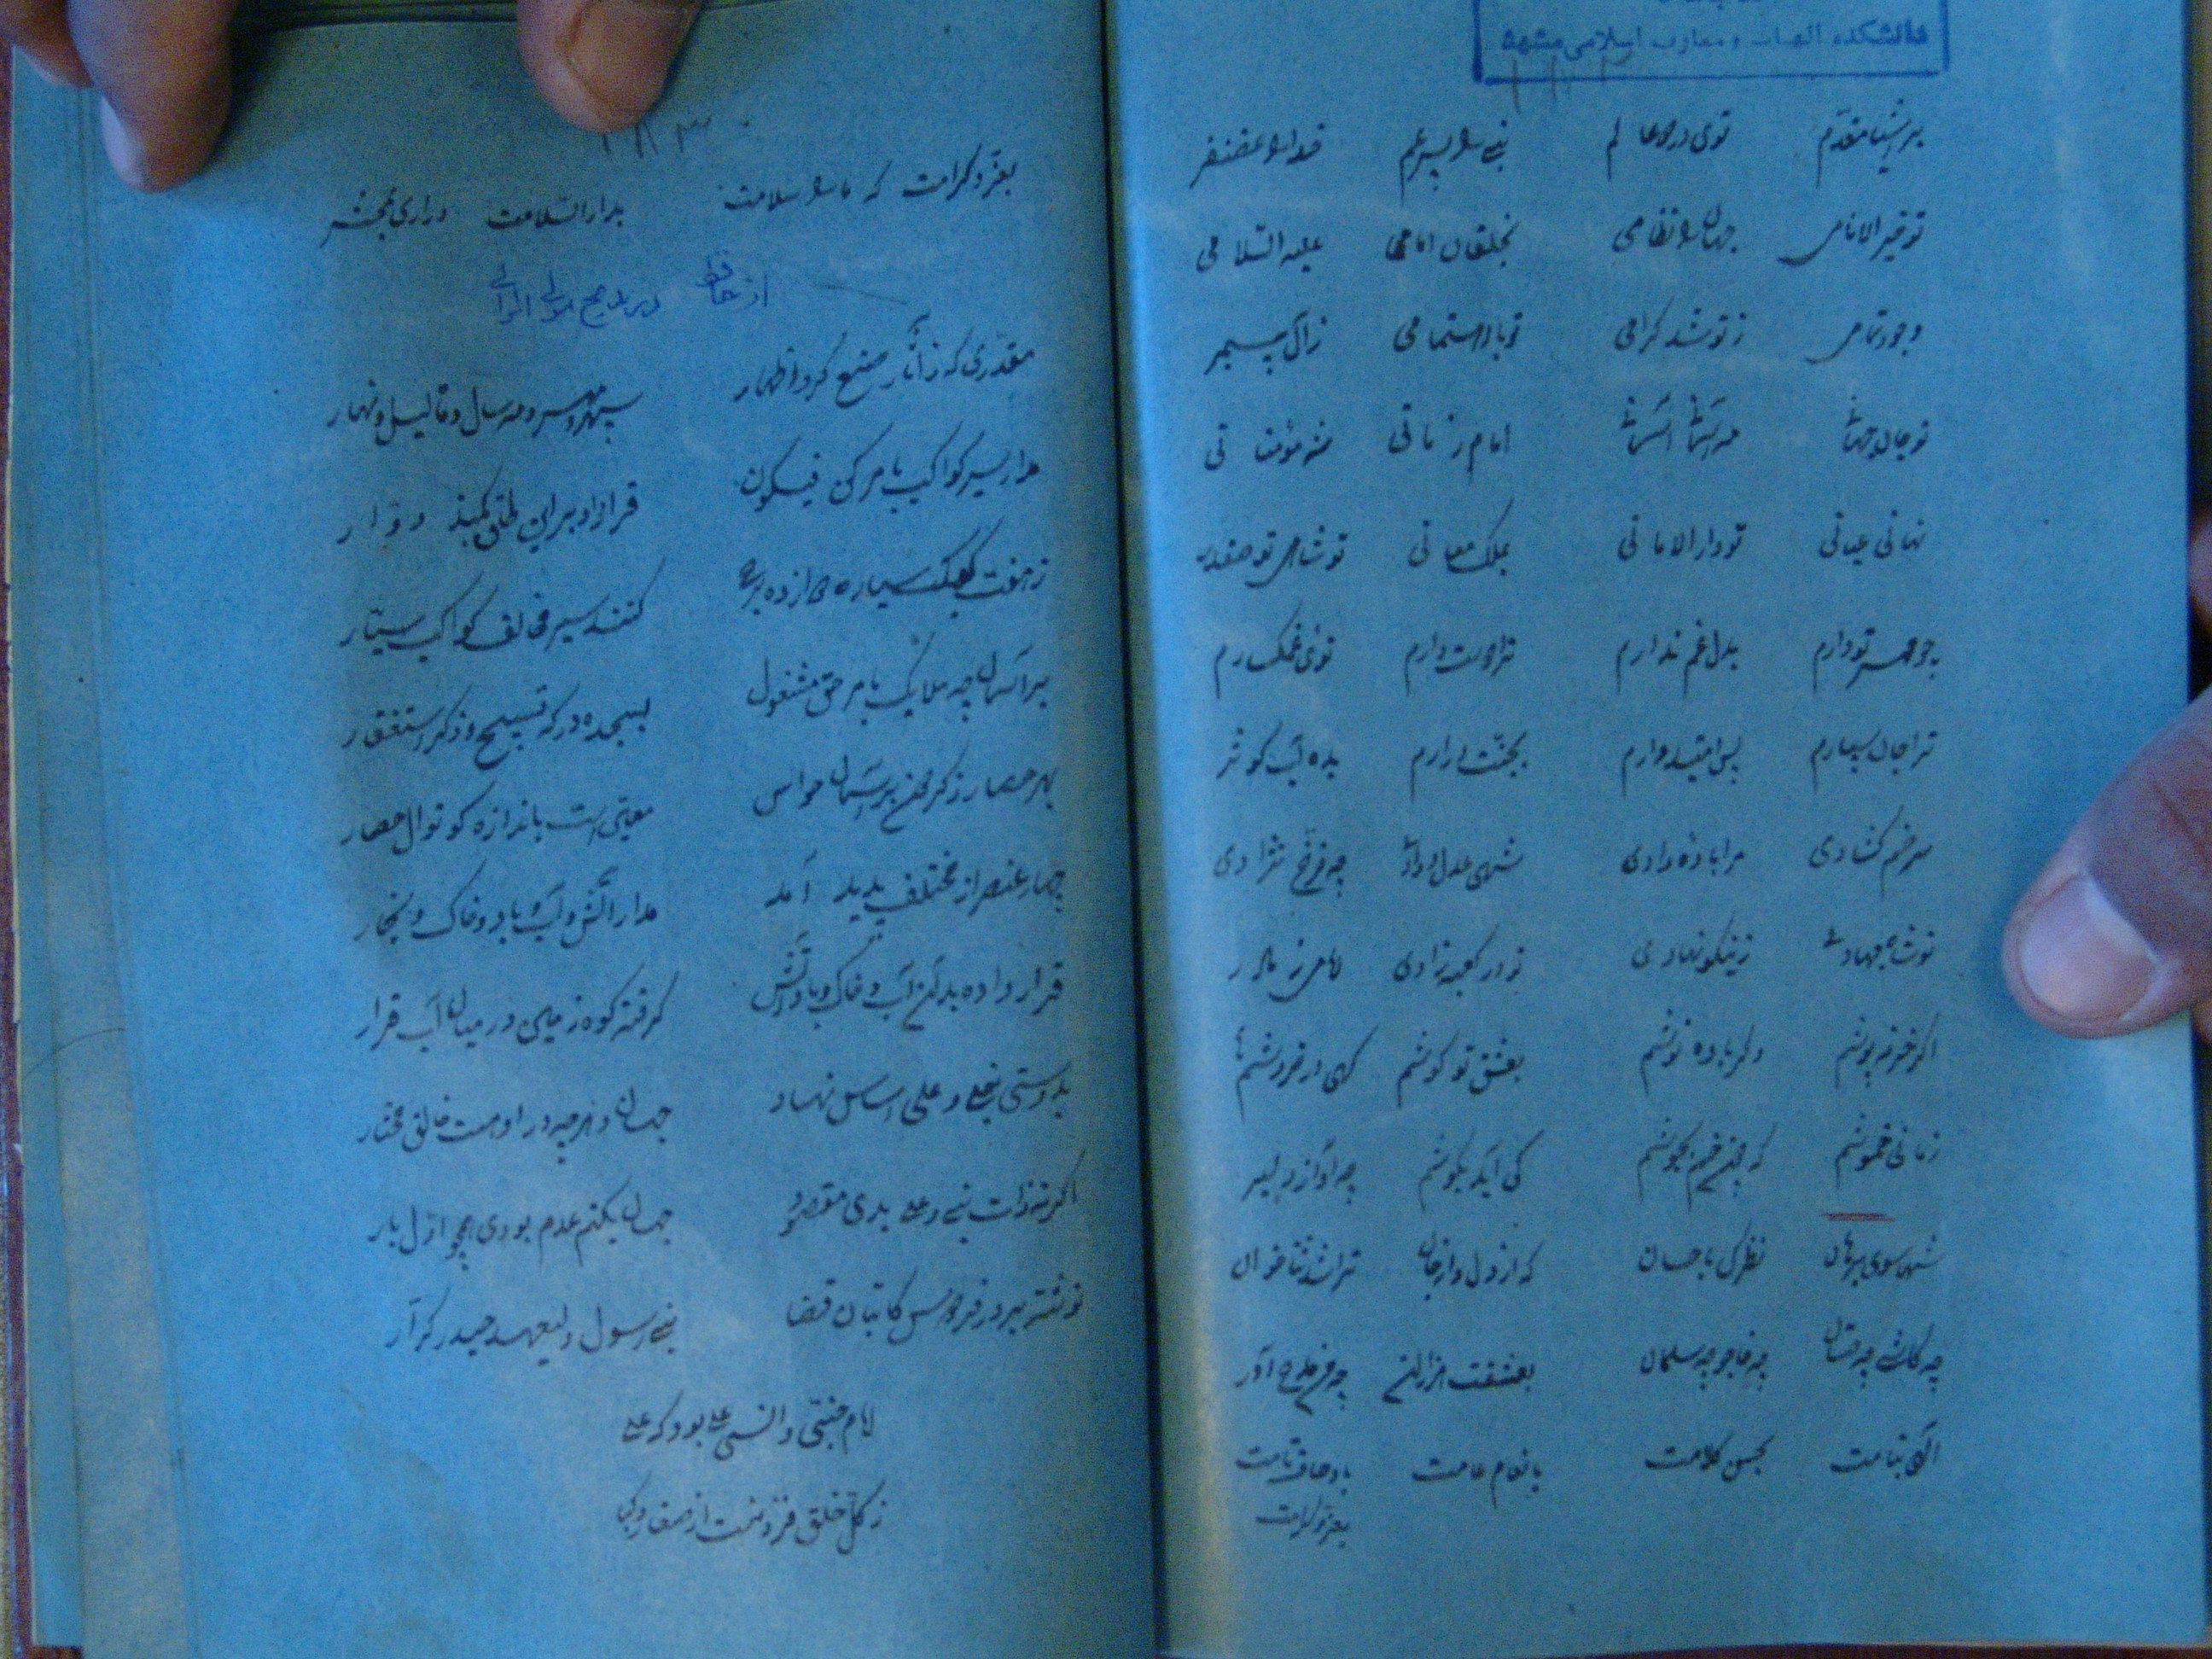 دانشکده الهیات و معارف اسلامی مشهد
بر اشیا مقدم توی در دو عالم نبی را پسر عم خدا را غضنفر
تو خیر الانامی جهان را نظامی بخلقان امامی علیه السلامی
وجود تمامی ز تو شد گرامی تو بادستمامی ز آل پیمبر
تو جان جهانی مه آسمانی امام زمانی شه مؤمنانی
نهانی عیانی تو دار الامانی بملک معانی تو شاهی تو صفدر
چو مهر تو دارم بدل غم ندارم ترا دوست دارم توئی غمگسارم
ترا جان سپارم بس امیدوارم بده آب کوثر
سر خم گشادی مرا باده دادی شهی عدل و دادی چه فرخ نژادی
تو شاه جهادی ز نیکو نهادی تو در کعبه زادی ز مادر
اگر خرقه پوشم وگر باده نوشم بعشق تو کوشم گهی در خروشم
زمانی خموشم که چون خم بجوشم کی آید بگوشم چه آواز دلبر
نظر کن باحسان که از دل و از جان ترا شد ثنا خوان
چه خاجو چه سلمان بعشقت
الهی بنامت بحسن کلامت بانعام عامت باوصاف تامت
بعز و کرامت
۱۸۳۰
بعز و کرامت که ما را سلامت بدار السلامت در آری بمحشر
از حافظ در مدح مولی الموالی
مقدری که ز آثار صنع کرد اظهار سپهر و مهر و مه و سال و ماه و لیل و نهار
مدار سیر کواکب بامر کن فیکون قرار داد بر این طاق گنبد دوار
ز هفت کوکب سیاره کنند سیر مخالف کواکب سیار
بر آسمان چه ملایک بامر حق مشغول بسجده در گه تسبیح و ذکر استغفار
معین است باندازه کوتوال حصار
چهار عنصر از مختلف پدید آمد مدار آتش و آب و باد و خاک و بخار
قرار داده بر آب و خاک و باد و آتش گرفته کوه زمین در میان آب قرار
بدوستی نبی و علی اساس نهاد جهان و هر چه در او هست خالق مختار
اگر نه ذات نبی و علی بدی مقصود جهان بکتم عدم بودی همچو اول بار
نوشته بر در فردوس کاتبان قضا نبی رسول و لیعهد حیدر کرار
امام جنی و انسی علی بود که علی
ز کل خلق فزونست از صغار و کبار